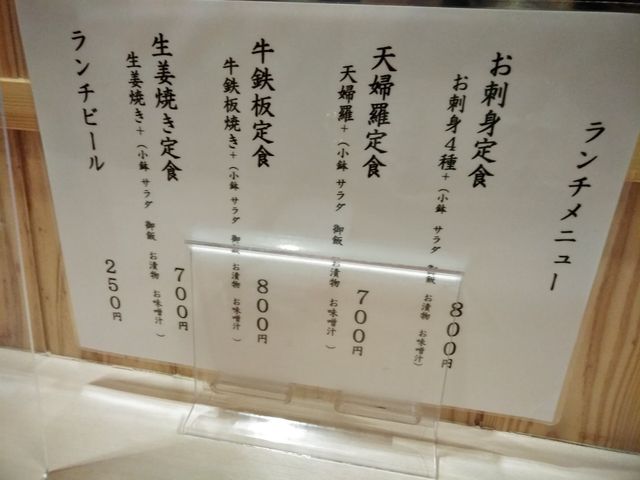 ランチメニュー
お刺身定食
お刺身4種+（小鉢 サラダ 御飯 お漬物 お味噌汁）
800円
天婦羅定食
天婦羅+（小鉢 サラダ 御飯 お漬物 お味噌汁 ）
700円
牛鉄板定食
牛鉄板焼き+（小鉢 サラダ 御飯 お漬物 お味噌汁 ）
800円
生姜焼き定食
生姜焼き+（小鉢 サラダ 御飯 お漬物 お味噌汁 ）
700円
ランチビール
250円